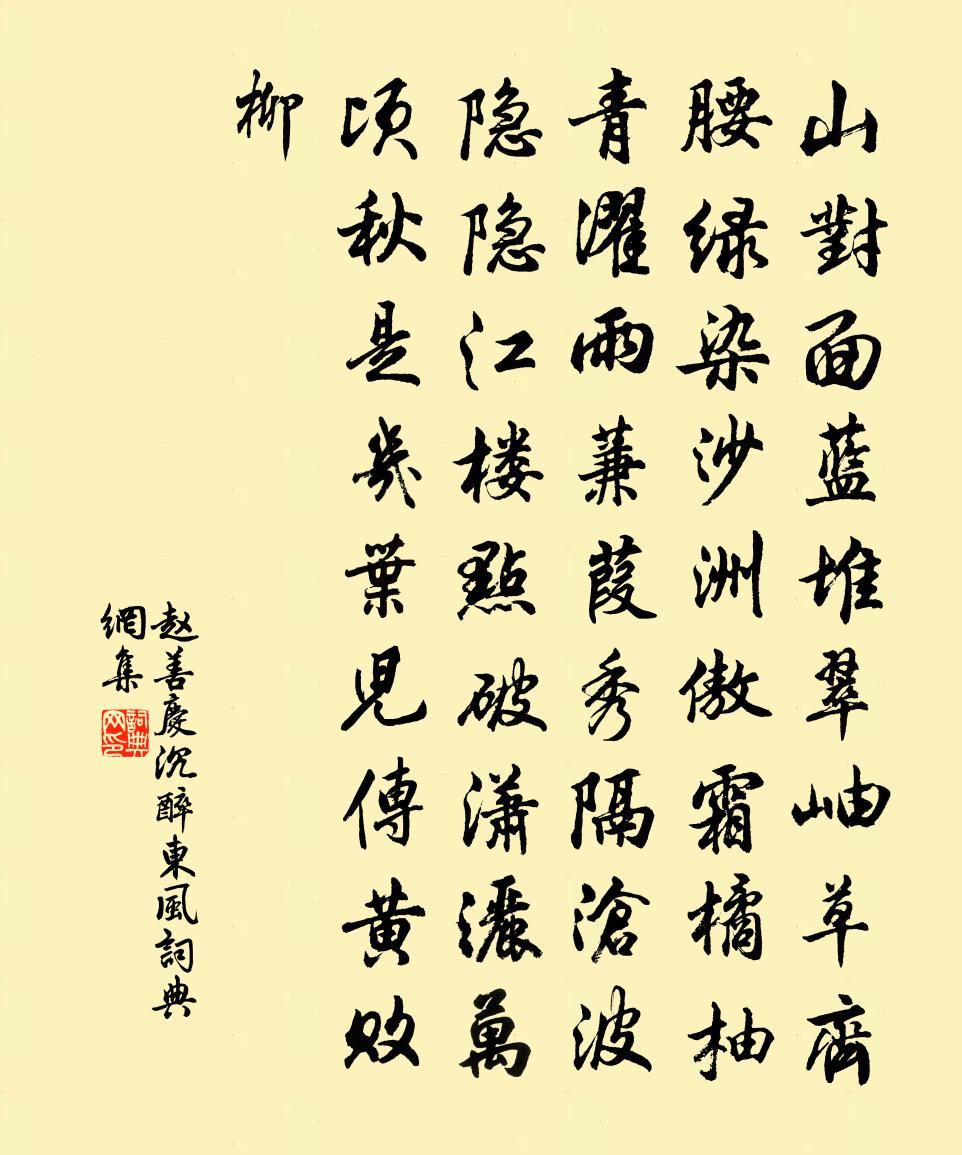 山對面藍堆翠岫草齊
腰绿染沙洲傲霜橘柚
青濯雨蒹葭秀隔滄波
隐隐江楼點破潇灑萬
顷秋是幾葉児傳黄败
柳
赵善慶沉醉東風詞典
網集
詞典
网印